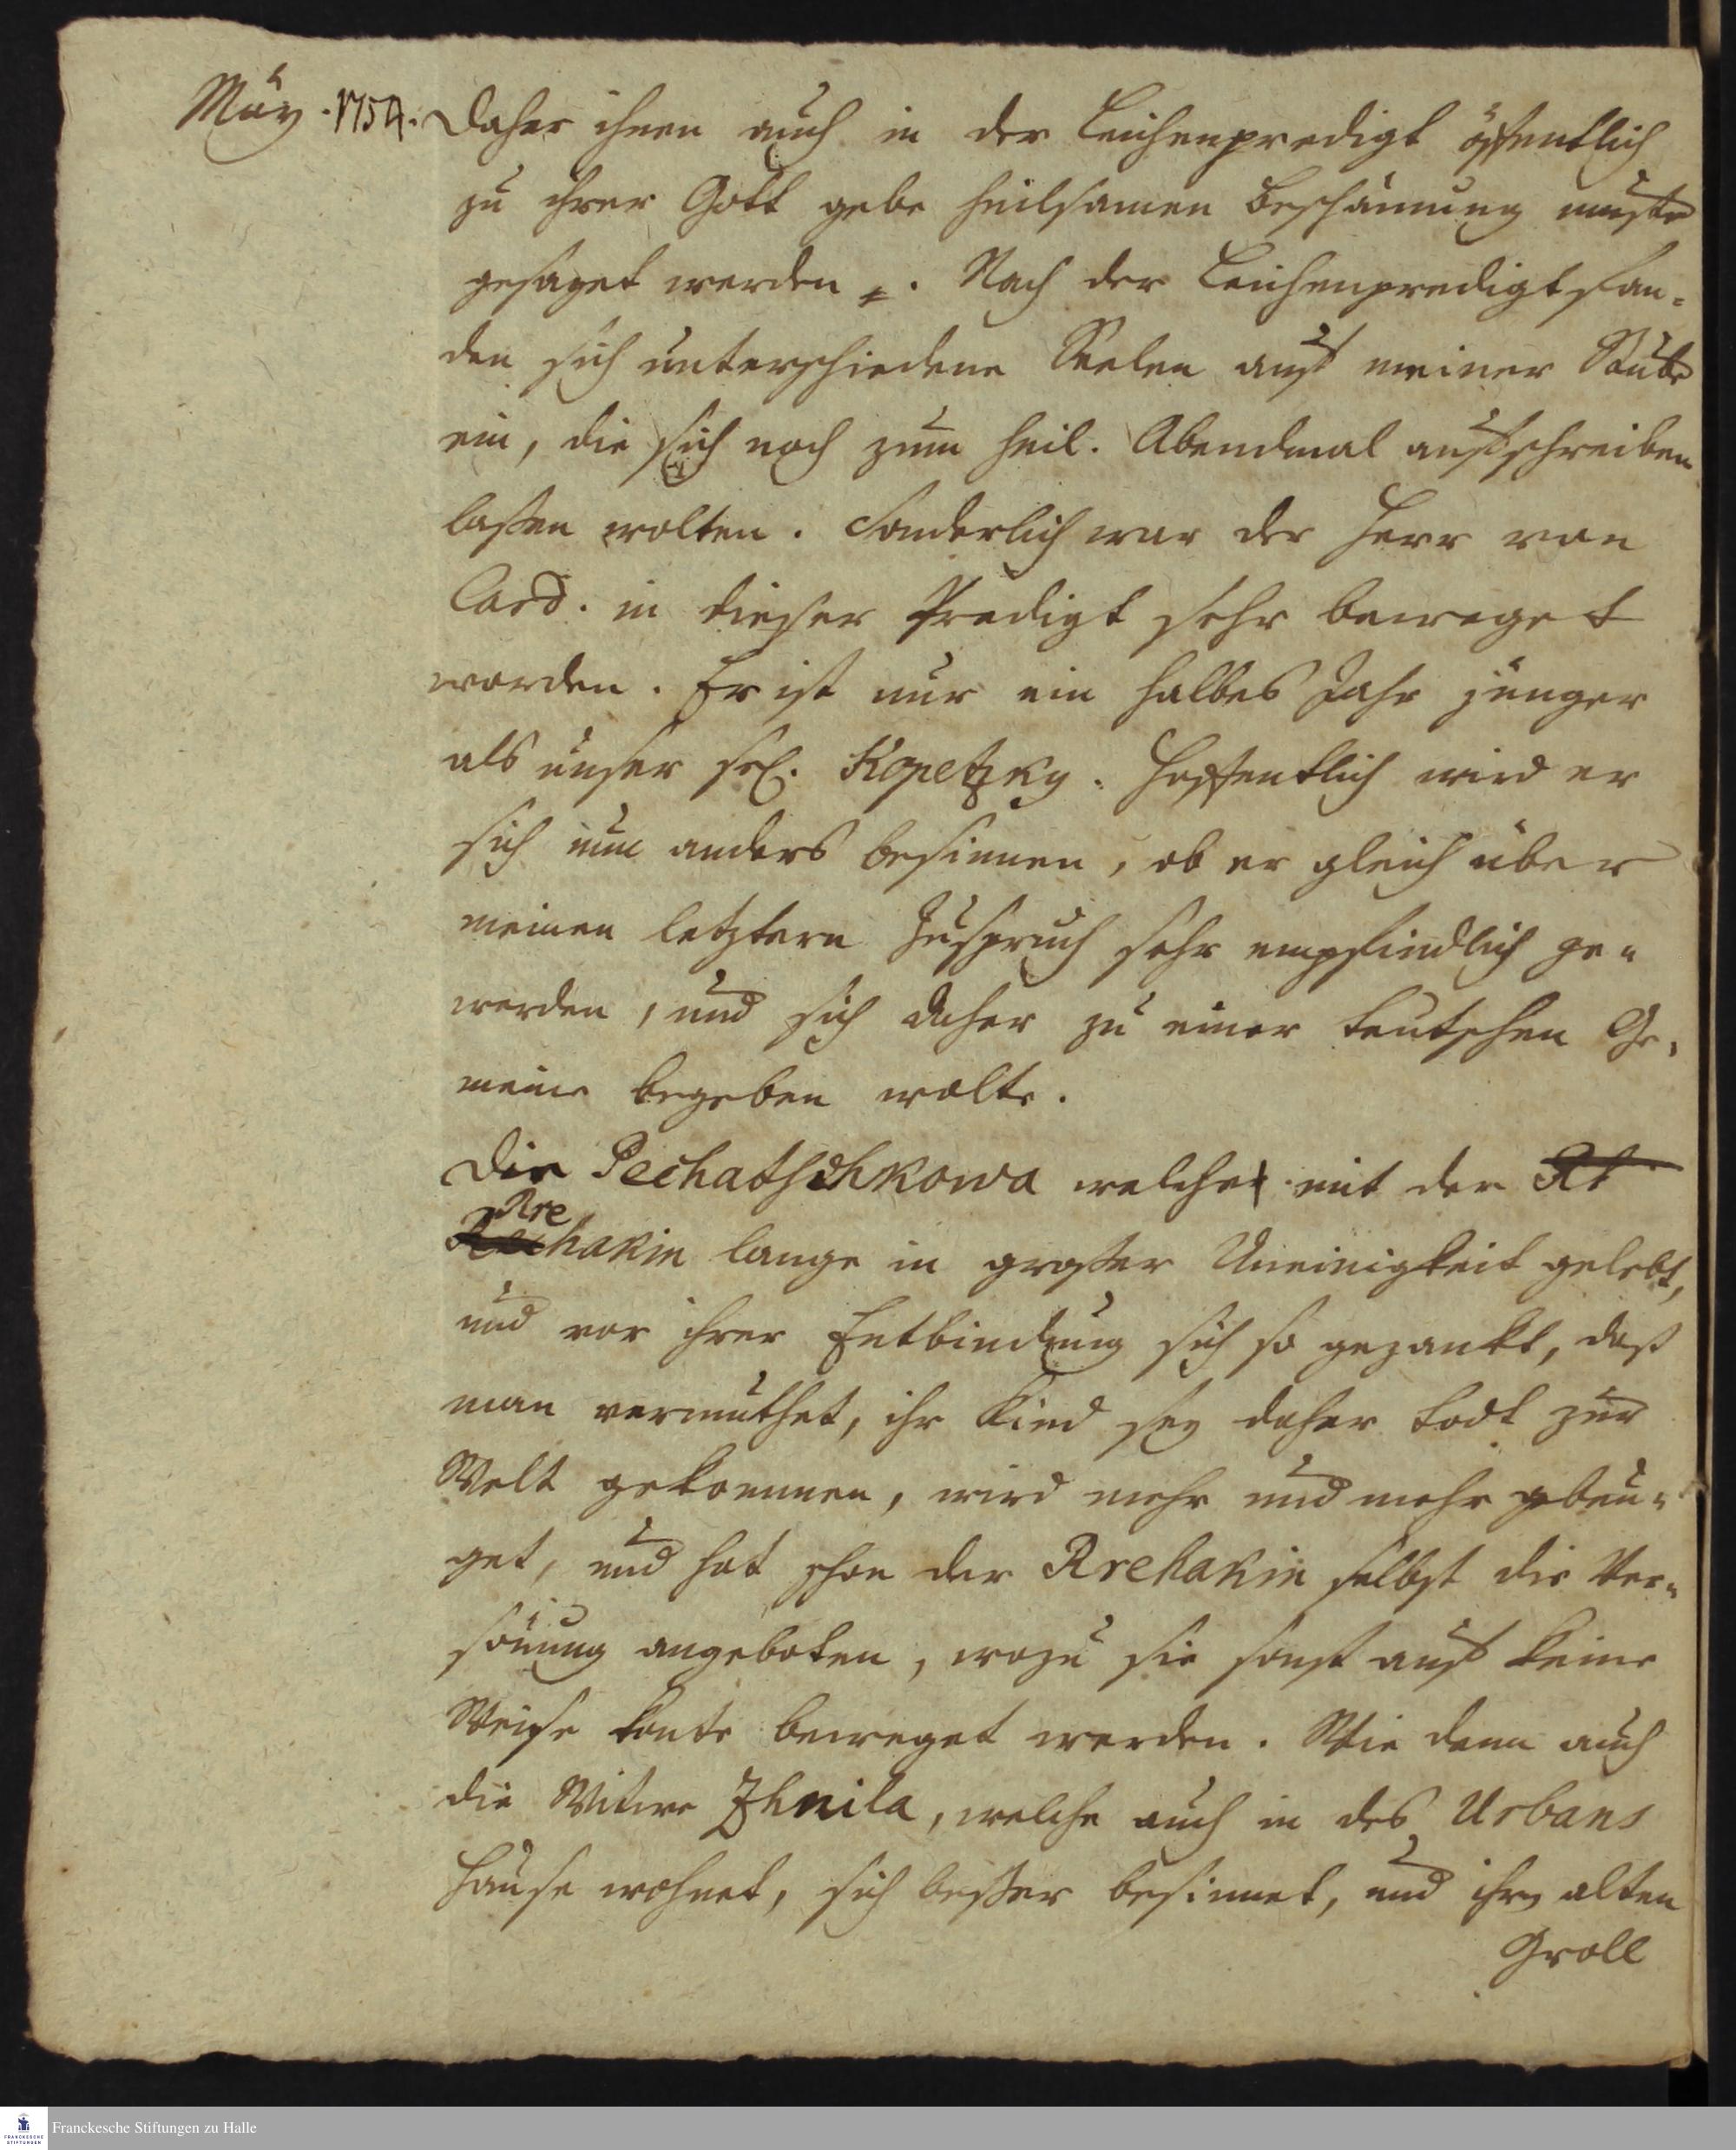 May. 1754. Daher ihnen auch in der Leichenpredigt öffentlich
zu ihrer Gott gebe heilsamen Beschämung muste
gesaget werden. Nach der Leichenpredigt fan-
den sich unterschiedene Seelen auf meiner Stube
ein, die sich noch zum heil. Abendmal aufschreiben
laßen wolten. Sonderlich war der Herr von
Card. in dieser Predigt sehr beweget
worden. Er ist nur ein halbes Jahr jünger
als unser sel. Kopetzky. Hoffentlich wird er
sich nun anders besinnen, ob er gleich über
meinen letztern Zuspruch sehr empfindlich ge-
worden, und sich daher zu einer teutschen Ge-
meine begeben wolte.
Die Pechatschkowa welche mit der Rt
Rre
hakin lange in großer Uneinigkeit gelebt,
und vor ihrer Entbindung sich so gezankt, daß
man vermuthet, ihr Kind sey daher todt zur
Welt gekommen, wird mehr und mehr gebeu-
get, und hat schon der Rrehakin selbst die Ver-
sönung angeboten, wozu sie sonst auf keine
Weise konte beweget werden. Wie denn auch
die Witwe Zhnila, welche auch in des Urbans
Hause wohnet, sich beßer besinnet, und ihrn alten
Groll
Franckesche Stiftungen zu Halle
FRANCKESCHE
STIFTUNGEN